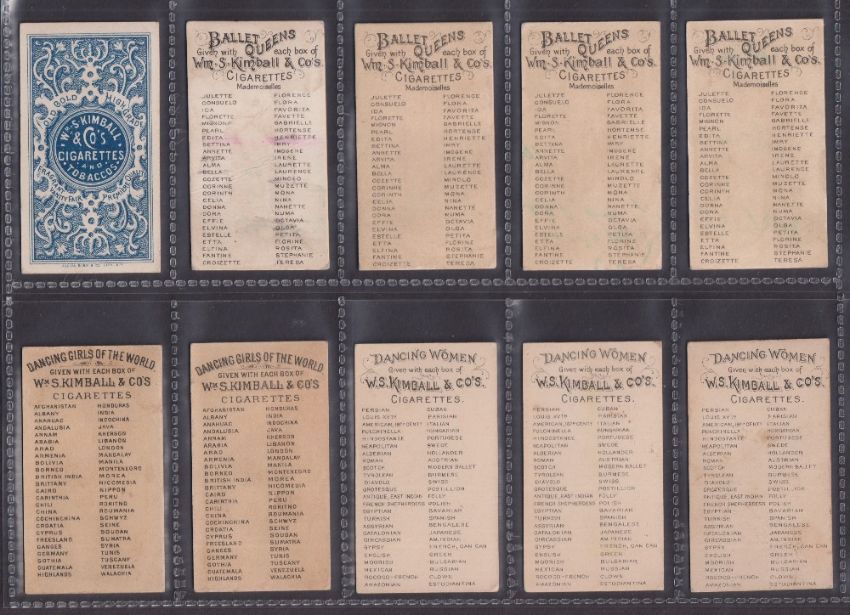 OLD GOLD HIGH GRADE
WM. S. KIMBALL
& CO'S
CIGARETTES
AND
TOBACCOS
BALLET
QUEENS
Given with each box of
Wm. S. Kimball & Co's.
CIGARETTES
Mademoiselles
JULETTE FLORENCE
CONSUELO FLORA
IDA FAVORITA
FLORETTE FAVETTE
MIGNON GABRIELLE
PEARL HORTENSE
EDITA HENRIETTE
BETTINA INRY
ANNETTE IMOGENE
ARVITA IRENE
ALMA LAURETTE
BELLA LAURENCE
COZETTE MINOLO
CORINNE MUZETTE
CORINTH MONA
CELIA NINA
DONNA NANETTE
DORA NUMA
EFFIE OCTAVIA
ELVINA OLGA
ESTELLE PETITA
ETTA FLORINE
ELFINA ROSITA
FANTINE STEPHANIE
CROIZETTE TERESA
BALLET
QUEENS
Given with each box of
Wm. S. Kimball & Co's.
CIGARETTES
Mademoiselles
JULETTE FLORENCE
CONSUELO FLORA
IDA FAVORITA
FLORETTE FAVETTE
MIGNON GABRIELLE
PEARL HORTENSE
EDITA HENRIETTE
BETTINA INRY
ANNETTE IMOGENE
ARVITA IRENE
ALMA LAURETTE
BELLA LAURENCE
COZETTE MINOLO
CORINNE MUZETTE
CORINTH MONA
CELIA NINA
DONNA NANETTE
DORA NUMA
EFFIE OCTAVIA
ELVINA OLGA
ESTELLE PETITA
ETTA FLORINE
ELFINA ROSITA
FANTINE STEPHANIE
CROIZETTE TERESA
BALLET
QUEENS
Given with each box of
Wm. S. Kimball & Co's.
CIGARETTES
Mademoiselles
JULETTE FLORENCE
CONSUELO FLORA
IDA FAVORITA
FLORETTE FAVETTE
MIGNON GABRIELLE
PEARL HORTENSE
EDITA HENRIETTE
BETTINA INRY
ANNETTE IMOGENE
ARVITA IRENE
ALMA LAURETTE
BELLA LAURENCE
COZETTE MINOLO
CORINNE MUZETTE
CORINTH MONA
CELIA NINA
DONNA NANETTE
DORA NUMA
EFFIE OCTAVIA
ELVINA OLGA
ESTELLE PETITA
ETTA FLORINE
ELFINA ROSITA
FANTINE STEPHANIE
CROIZETTE TERESA
BALLET
QUEENS
Given with each box of
Wm. S. Kimball & Co's.
CIGARETTES
Mademoiselles
JULETTE FLORENCE
CONSUELO FLORA
IDA FAVORITA
FLORETTE FAVETTE
MIGNON GABRIELLE
PEARL HORTENSE
EDITA HENRIETTE
BETTINA INRY
ANNETTE IMOGENE
ARVITA IRENE
ALMA LAURETTE
BELLA LAURENCE
COZETTE MINOLO
CORINNE MUZETTE
CORINTH MONA
CELIA NINA
DONNA NANETTE
DORA NUMA
EFFIE OCTAVIA
ELVINA OLGA
ESTELLE PETITA
ETTA FLORINE
ELFINA ROSITA
FANTINE STEPHANIE
CROIZETTE TERESA
DANCING GIRLS OF THE WORLD
GIVEN WITH EACH BOX OF
WM S. KIMBALL & CO'S
CIGARETTES
AFGHANISTAN HONDURAS
ALBANY INDIA
ANAHUAC INDOCHINA
ANDALUSIA JAVA
ANNAM KHERSON
ARABIA LIBANON
ARAD LONDON
ARMENIA MANDALAY
BOLIVIA MANILA
BORNEO MONTENEGRO
BRITISH INDIA MOREA
BIRMAH NICOMESIA
CAIRO NIPPON
CARINTHIA PERU
CHILI ROKITNO
CHOCO ROUMANIA
COCHINCHINA SCHWYZ
CROATIA SEINE
CYPRUS SOUDAN
FREESLAND SUMATRA
GANGES SYRIA
GERMANY TUNIS
GOTHA TUSCANY
GUATEMALA VENEZUELA
HIGHLANDS WALACHIA
DANCING GIRLS OF THE WORLD
GIVEN WITH EACH BOX OF
WM S. KIMBALL & CO'S
CIGARETTES
AFGHANISTAN HONDURAS
ALBANY INDIA
ANAHUAC INDOCHINA
ANDALUSIA JAVA
ANNAM KHERSON
ARABIA LIBANON
ARAD LONDON
ARMENIA MANDALAY
BOLIVIA MANILA
BORNEO MONTENEGRO
BRITISH INDIA MOREA
BIRMAH NICOMESIA
CAIRO NIPPON
CARINTHIA PERU
CHILI ROKITNO
CHOCO ROUMANIA
COCHINCHINA SCHWYZ
CROATIA SEINE
CYPRUS SOUDAN
FREESLAND SUMATRA
GANGES SYRIA
GERMANY TUNIS
GOTHA TUSCANY
GUATEMALA VENEZUELA
HIGHLANDS WALACHIA
DANCING WOMEN
GIVEN WITH EACH BOX OF
W. S. KIMBALL & CO'S.
CIGARETTES.
PERSIAN CUBAN
LOUIS XVTH PARISIAN
AMERICAN, 18TH CENT'Y ITALIAN
PUNCHINELLA HUNGARIAN
HINDOSTANEE PORTUGUESE
NEAPOLITAN SWEDE
ALGERIAN HOLLANDER
ROMAN AUSTRIAN
SCOTCH MODERN BALLET
TYROLEAN BURMESE
DIABLO SWISS
GROTESQUE POSTILLION
ANTIQUE, EAST INDIAN FOLLY
FRENCH SHEPHERDESS POLISH
EGYPTIAN BAVARIAN
TURKISH SPANISH
GRECIAN BENGALESE
CATALONIAN JAPANESE
CIRCASSIAN ALMEAN
GYPSY FRENCH, CAN CAN
ENGLISH GREEK
MOORISH BULGARIAN
MEXICAN RUSSIAN
ROCOCO-FRENCH CLOWN
AMAZONIAN ESTUDIANTINA
DANCING WOMEN
GIVEN WITH EACH BOX OF
W. S. KIMBALL & CO'S.
CIGARETTES.
PERSIAN CUBAN
LOUIS XVTH PARISIAN
AMERICAN, 18TH CENT'Y ITALIAN
PUNCHINELLA HUNGARIAN
HINDOSTANEE PORTUGUESE
NEAPOLITAN SWEDE
ALGERIAN HOLLANDER
ROMAN AUSTRIAN
SCOTCH MODERN BALLET
TYROLEAN BURMESE
DIABLO SWISS
GROTESQUE POSTILLION
ANTIQUE, EAST INDIAN FOLLY
FRENCH SHEPHERDESS POLISH
EGYPTIAN BAVARIAN
TURKISH SPANISH
GRECIAN BENGALESE
CATALONIAN JAPANESE
CIRCASSIAN ALMEAN
GYPSY FRENCH, CAN CAN
ENGLISH GREEK
MOORISH BULGARIAN
MEXICAN RUSSIAN
ROCOCO-FRENCH CLOWN
AMAZONIAN ESTUDIANTINA
DANCING WOMEN
GIVEN WITH EACH BOX OF
W. S. KIMBALL & CO'S.
CIGARETTES.
PERSIAN CUBAN
LOUIS XVTH PARISIAN
AMERICAN, 18TH CENT'Y ITALIAN
PUNCHINELLA HUNGARIAN
HINDOSTANEE PORTUGUESE
NEAPOLITAN SWEDE
ALGERIAN HOLLANDER
ROMAN AUSTRIAN
SCOTCH MODERN BALLET
TYROLEAN BURMESE
DIABLO SWISS
GROTESQUE POSTILLION
ANTIQUE, EAST INDIAN FOLLY
FRENCH SHEPHERDESS POLISH
EGYPTIAN BAVARIAN
TURKISH SPANISH
GRECIAN BENGALESE
CATALONIAN JAPANESE
CIRCASSIAN ALMEAN
GYPSY FRENCH, CAN CAN
ENGLISH GREEK
MOORISH BULGARIAN
MEXICAN RUSSIAN
ROCOCO-FRENCH CLOWN
AMAZONIAN ESTUDIANTINA